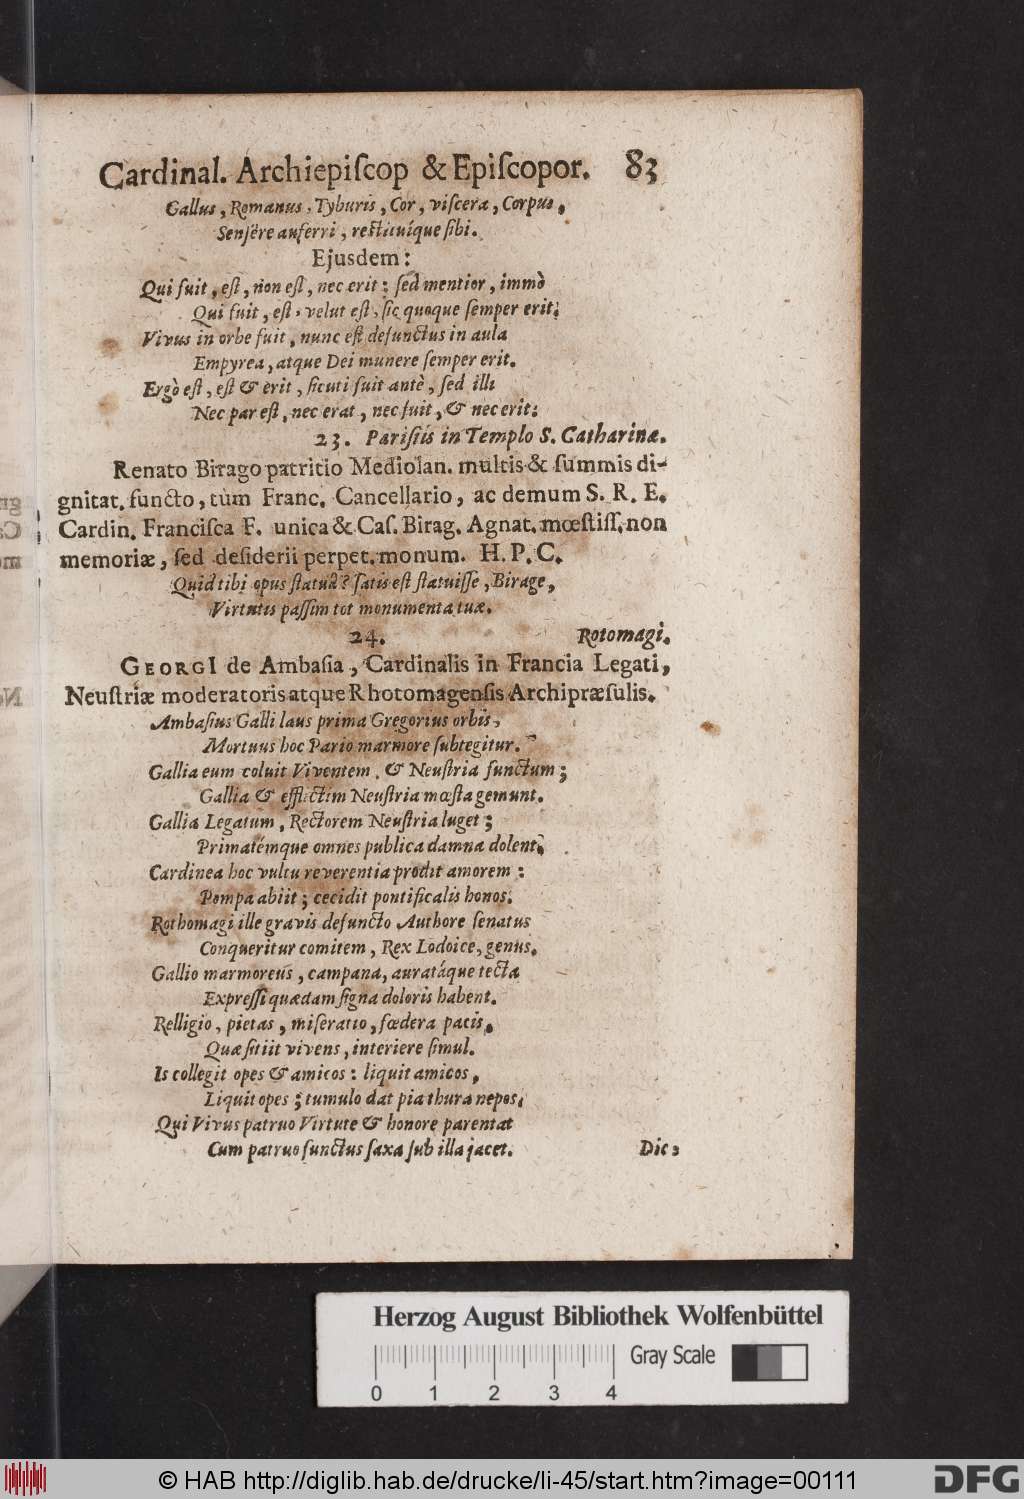 Cardinal. Archiepiſcop & Epiſcopor. 83
Gallus, Romanus, Tyburis, Cor, viſcera, Corpus,
Senſêre auferri, reſtituíque ſibi.
Ejusdem:
Qui fuit, eſt, non eſt, nec erit: ſed mentior, immò
Qui fuit, eſt, velut eſt, ſic quoque ſemper erit:
Vivus in orbe fuit, nunc eſt defunctus in aula
Empyrea, atque Dei munere ſemper erit.
Ergò eſt, eſt & erit, ſicuti fuit antè, ſed illi
Nec par eſt, nec erat, nec fuit, & nec erit:
23. Pariſiis in Templo S. Catharinæ.
Renato Birago patritio Mediolan. multis & ſummis di-
gnitat. functo, tùm Franc. Cancellario, ac demum S. R. E.
Cardin. Franciſca F. unica & Cæſ. Birag. Agnat. mœſtiſſ. non
memoriæ, ſed deſiderii perpet. monum. H. P. C.
Quid tibi opus ſtatuâ? ſatis eſt ſtatuiſſe, Birage,
Virtutis paſſim tot monumenta tuæ.
24. Rotomagi.
GEORGI de Ambaſia, Cardinalis in Francia Legati,
Neuſtriæ moderatoris atque Rhotomagenſis Archipræſulis.
Ambaſius Galli laus prima Gregorius orbis,
Mortuus hoc Pario marmore ſubtegitur.
Gallia eum coluit Viventem, & Neuſtria functum;
Gallia & efflictim Neuſtria mœſta gemunt.
Gallia Legatum, Rectorem Neuſtria luget;
Primatémque omnes publica damna dolent.
Cardinea hoc vultu reverentia prodit amorem:
Pompa abiit; cecidit pontificalis honos.
Rothomagi ille gravis defuncto Authore ſenatus
Conqueritur comitem, Rex Lodoice, genus.
Gallio marmoreus, campana, auratáque tecta
Expreſſi quædam ſigna doloris habent.
Relligio, pietas, miſeratio, fœdera pacis,
Quæ ſitiit vivens, interiere ſimul.
Is collegit opes & amicos: liquit amicos,
Liquit opes; tumulo dat pia thura nepos,
Qui Vivus patruo Virtute & honore parentat
Cum patruo functus ſaxa ſub illa jacet. Dic;
Herzog August Bibliothek Wolfenbüttel
Gray Scale
0 1 2 3 4
© HAB http://diglib.hab.de/drucke/li-45/start.htm?image=00111
DFG